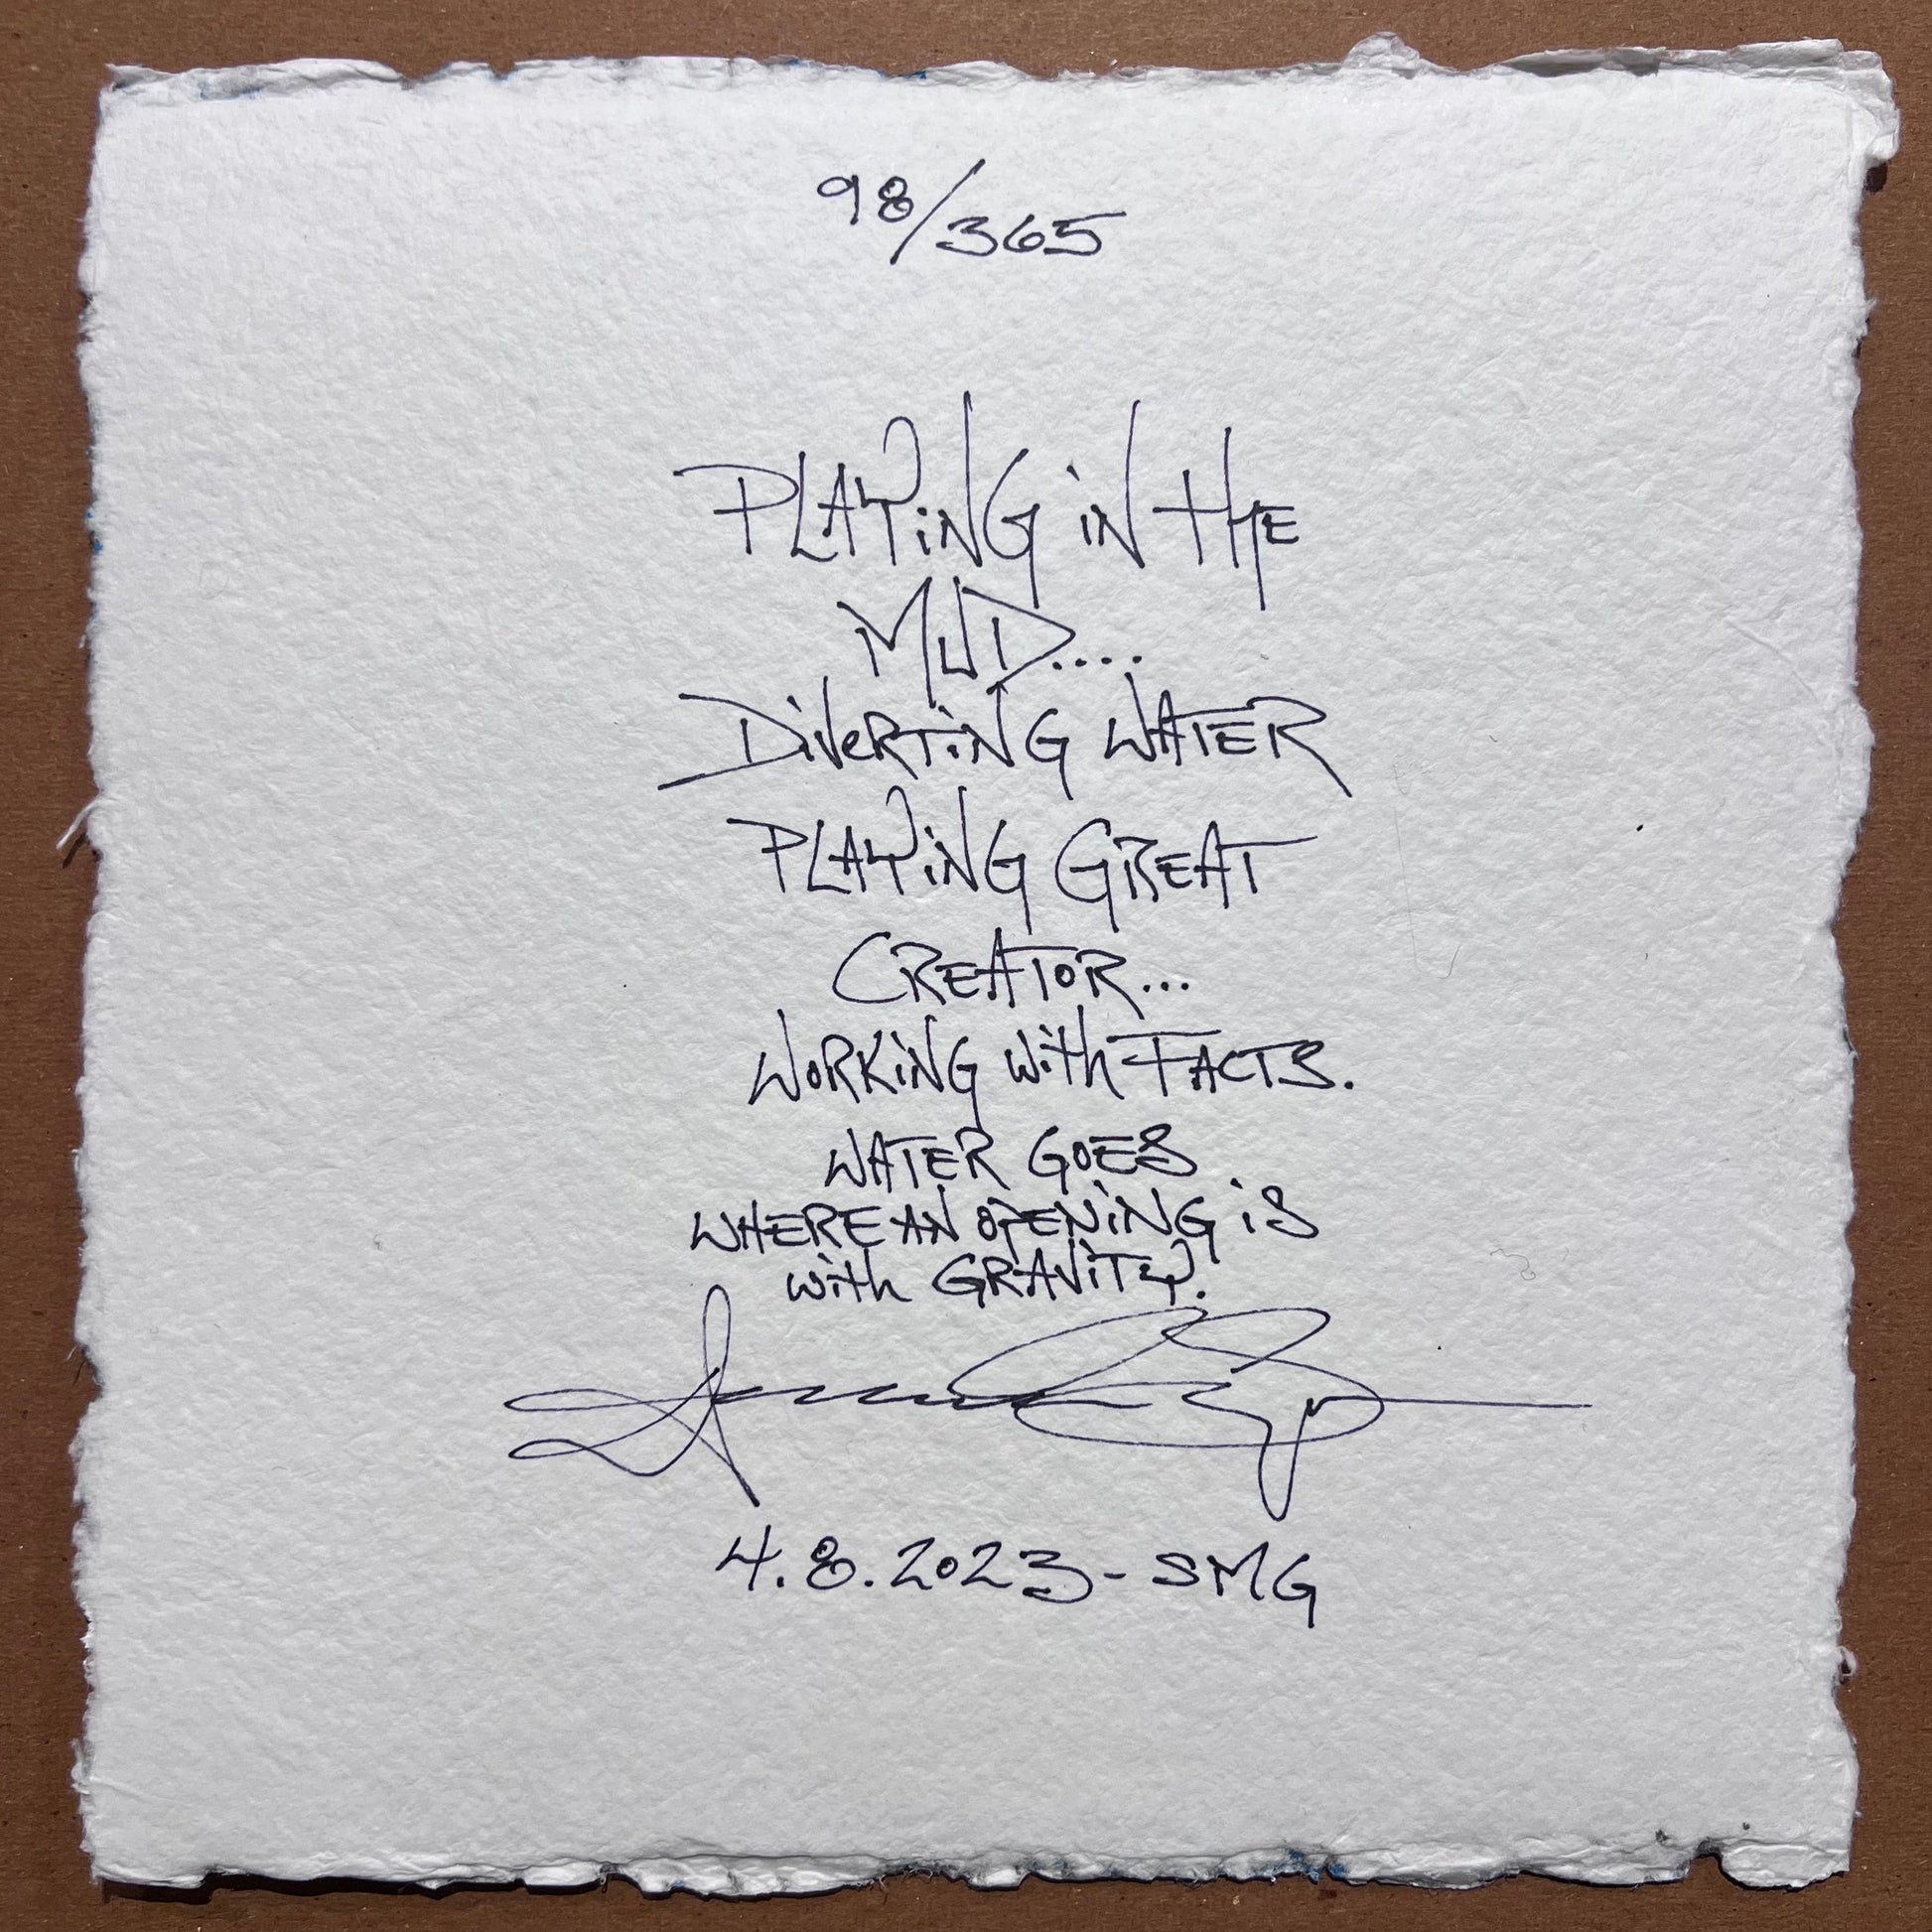 98/365
PLAYiNG iN tHE
MUD....
DiVeRTiNG WATER
PLAYiNG GREAT
CREATOR...
WORKiNG With FACTS.
WATER GOES
WHERE AN OPENiNG iS
With GRAViTY.
4.8.2023-SMG